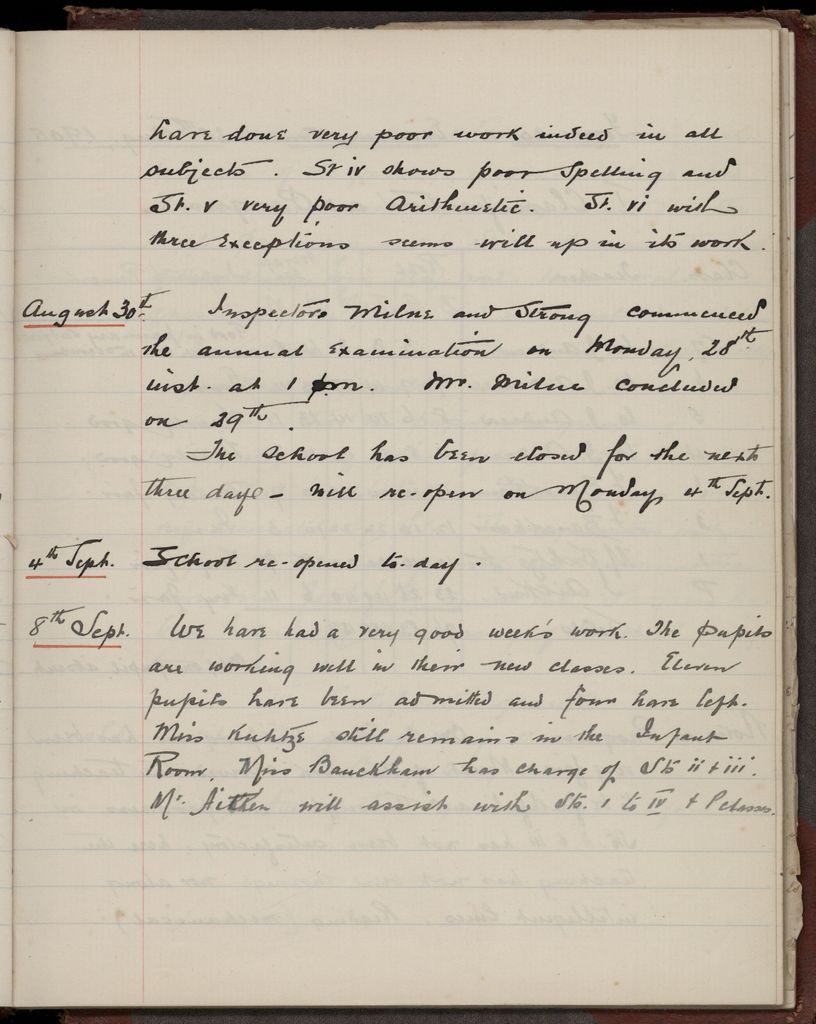 have done very poor work indeed in all
subjects. St iv shows poor Spelling and
St. v very poor Arithmetic. St. vi with
three exceptions seems well up in its work.
August 30th. Inspectors Milne and Strong commenced
the annual examination on Monday, 28th
inst. at 1 pm. Mr. Milne concluded
on 29th.
The school has been closed for the next
three days - will re-open on Monday, 4th Sept.
4th Sept. School re-opened to-day.
8th Sept. We have had a very good week's work. The pupils
are working well in their new classes. Eleven
pupils have been admitted and four have left.
Miss Kuhtze still remains in the Infant
Room. Miss Bauckham has charge of Sts ii + iii.
Mr. Aitken will assist with Sts. 1 to IV + P classes.